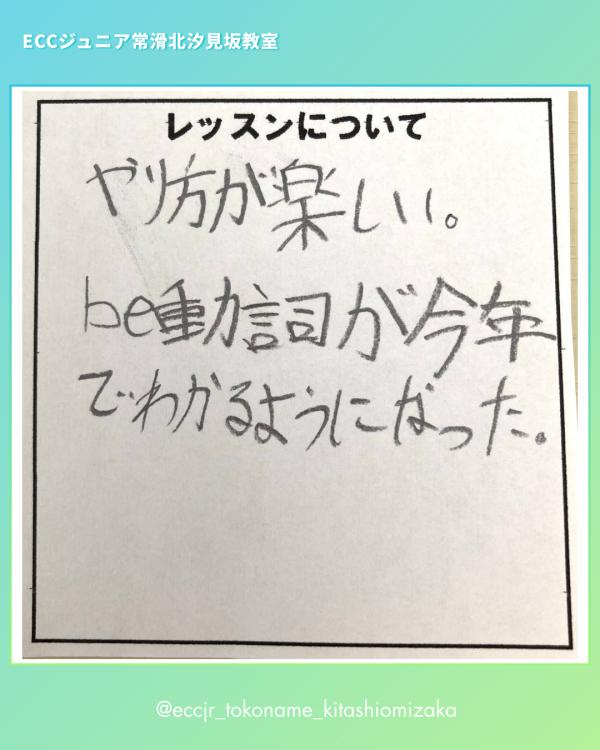 ECCジュニア常滑北汐見坂教室
レッスンについて
やり方が楽しい。
be動詞が今年
でわかるようになった。
@eccjr_tokoname_kitashiomizaka